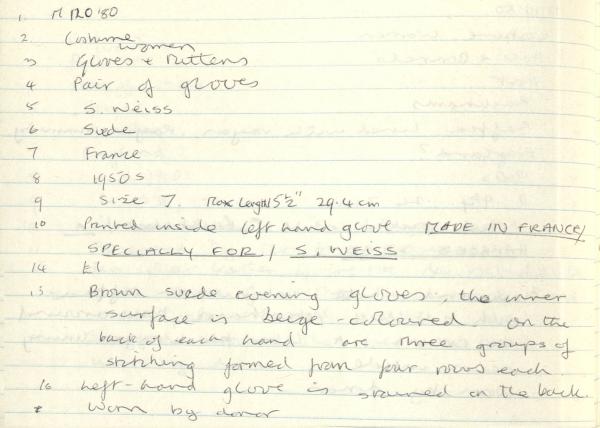 1. M 120'80
2 Costume women
3 Gloves + Mittens
4 Pair of gloves
5 S. Weiss
6 Suede
7 France
8 1950s
9 Size 7. Max Length 15½" 29.4cm
10 Printed inside left hand glove MADE IN FRANCE/
SPECIALLY FOR / S. WEISS
14 £1
15 Brown suede evening gloves, the inner
surface is beige-coloured. On the
back of each hand are three groups of
stitching formed from four rows each.
16 Left-hand glove is stained on the back.
* Worn by donor